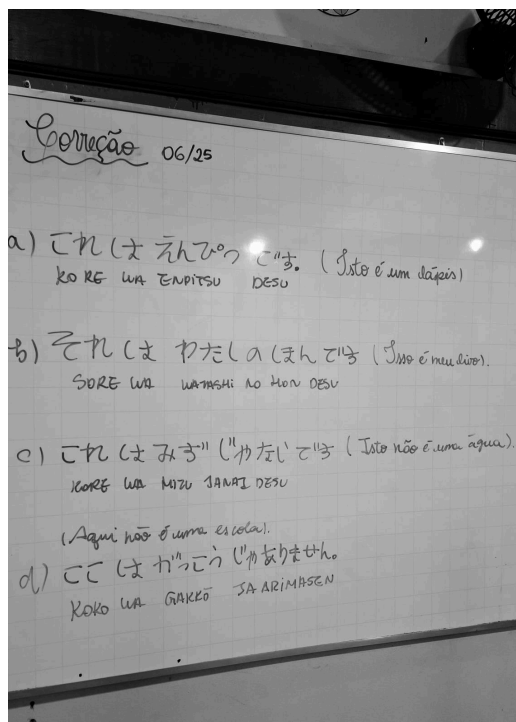 Correção 06/25
a) これは えんぴつ です。 (Isto é um lápis)
KORE WA ENPITSU DESU
b) それは わたしのほんです (Isso é meu livro).
SORE WA WATASHI NO HON DESU
c) これは みず じゃないです (Isto não é uma água).
KORE WA MIZU JANAI DESU
(Aqui não é uma escola).
d) ここは がっこう じゃありません。
KOKO WA GAKKŌ JA ARIMASEN